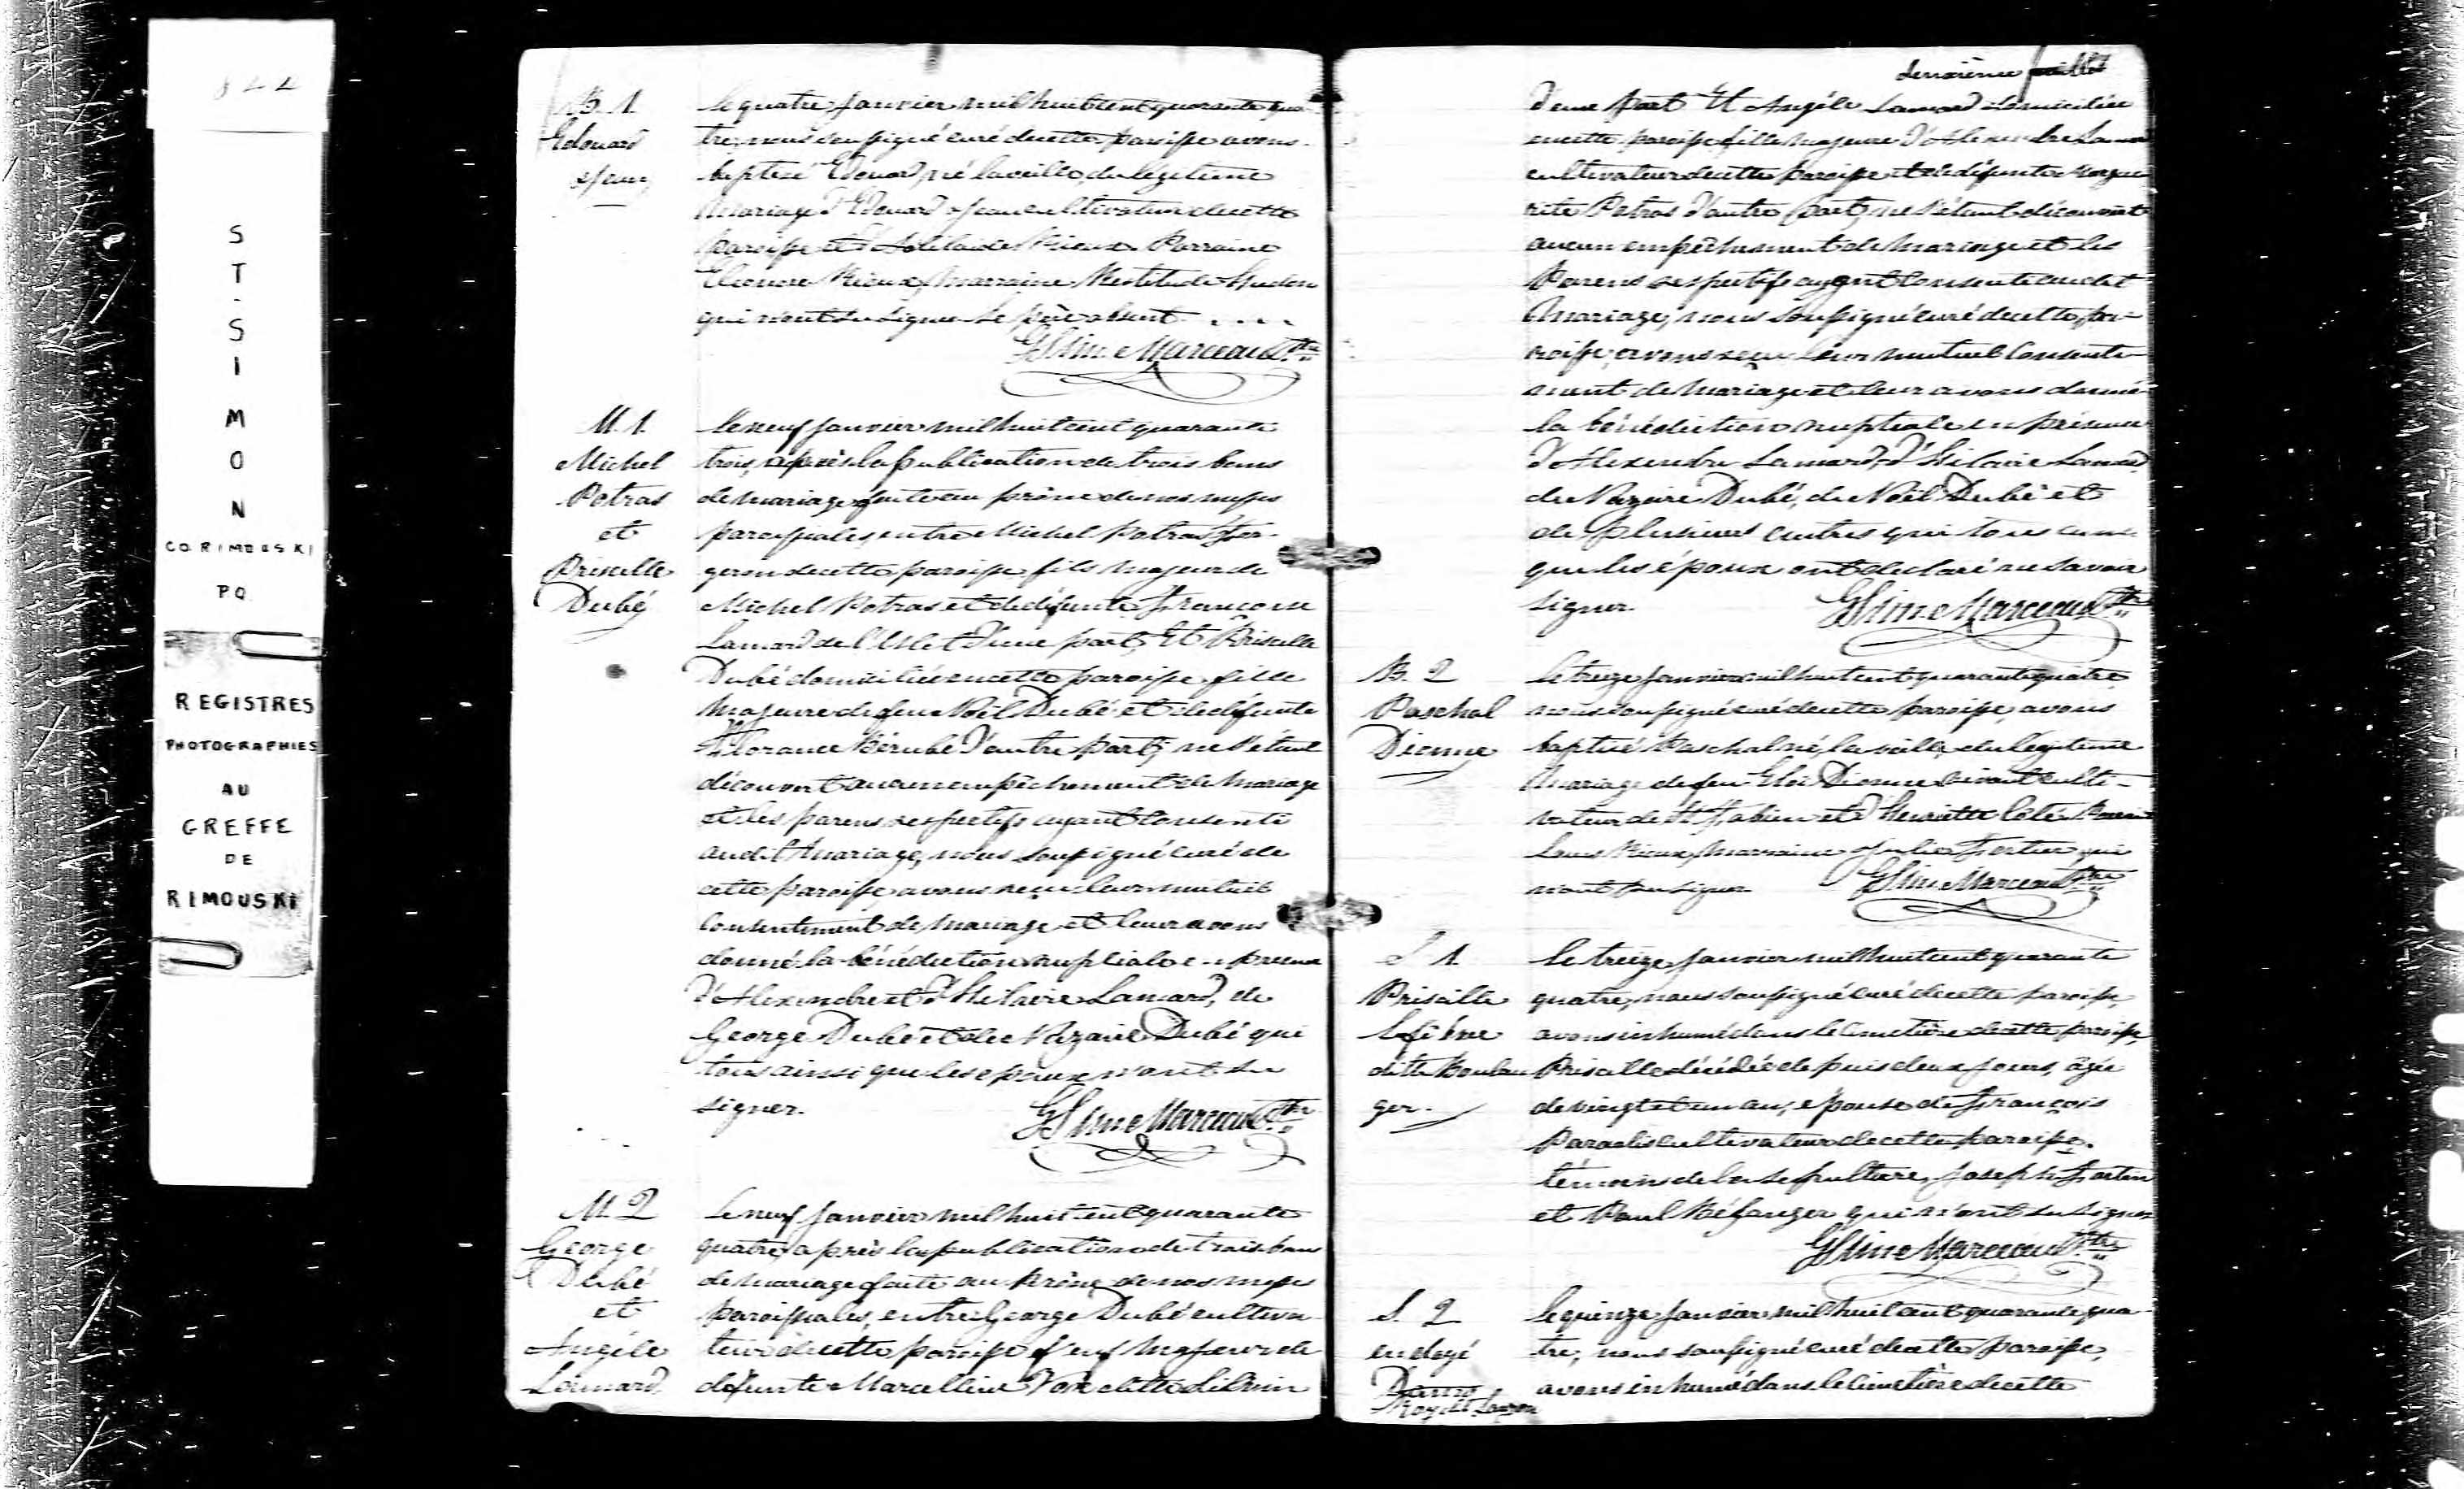 ST-SIMON
CO. RIMOUSKI
PQ
REGISTRES
PHOTOGRAPHIES
AU
GREFFE
DE
RIMOUSKI
B. 1.
Edouard
Jean
Le quatre Janvier mil huit cent quarante qua-
tre, nous soussigné curé de cette paroisse avons
baptisé Edouard, né la veille, du légitime
mariage d'Edouard Jean cultivateur de cette
paroisse et d'Adelaïde Rioux. Parraine
Eleonore Rioux, Marraine Restitude Hudon
qui n'ont su signer. Le père absent
Marceau Ptre
M. 1.
Michel
Potras
et
Priscille
Dubé
Le neuf Janvier mil huit cent quarante
trois, après la publication de trois bans
de mariage faite au prône de nos messes
paroissiales, entre Michel Potras For-
geron de cette paroisse fils majeur de
Michel Potras et de défunte Francoise
Lamard de l'Islet d'une part, Et Priscille
Dubé domiciliée en cette paroisse fille
majeure de feu Noël Dubé et de défunte
Florance Bérubé d'autre part, ne s'étant
découvert aucun empêchement de mariage
et les parens respectifs ayant consenti
audit mariage, nous soussigné curé de
cette paroisse avons reçu leur mutuel
consentement de mariage et leur avons
donné la bénédiction nuptiale en présence
d'Alexendre et d'Hilaire Lamard, de
George Dubé et de Nazaire Dubé qui
tous ainsi que les epoux n'ont su
signer.
Marceau Ptre
M. 2
George
Dubé
et
Angéle
Lamard
Le neuf Janvier mil huit cent quarante
quatre, après la publication de trois bans
de mariage faite au prône de nos messes
paroissiales, entre George Dubé cultiva-
teur de cette paroisse veuf majeur de
défunte Marcelline
deuxième feuillet
d'une part Et Angéle Lamard domiciliée
en cette paroisse fille majeure d'Alexendre Lamard
cultivateur de cette paroisse et de défunte Margue-
rite Potras d'autre part, ne s'étant découvert
aucun empêchement de mariage et les
Parens respectifs ayant consenti audit
Mariage, nous soussigné curé de cette pa-
roisse, avons reçu leur mutuel consente-
ment de mariage et leur avons donné
la bénédiction nuptiale en présence
d'Alexendre Lamard, d'Hilaire Lamard
de Nazaire Dubé, de Noël Dubé et
de plusieurs autres qui tous ainsi
que les époux ont déclaré ne savoir
signer.
Marceau Ptre
B. 2
Paschal
Dionne
Le treize Janvier mil huit cent quarante quatre
nous soussigné curé de cette paroisse, avons
baptisé Paschal né la veille, du légitime
mariage de feu Eloi Dionne vivant culti-
vateur de St Fabien et d'Henriette Coté. Parrain
Louis Rioux, marraine Julie Fortier qui
n'ont su signer.
Marceau Ptre
S 1
Priscille
Lefebvre
ditte Boulan
ger.
Le treize Janvier mil huit cent quarante
quatre, nous soussigné curé de cette paroisse,
avons inhumé dans le Cimetière de cette paroisse,
Priscille décédée depuis deux jours, âgée
de vingt et un an, épouse de François
Paradis cultivateur de cette paroisse.
témoins de la sepulture, Joseph Fortin
et Paul Bélanger qui n'ont su signer
Marceau Ptre
S. 2
ondoyé
Le quinze Janvier mil huit cent quarante qua-
tre, nous soussigné curé de cette paroisse,
avons inhumé dans le cimetière de cette